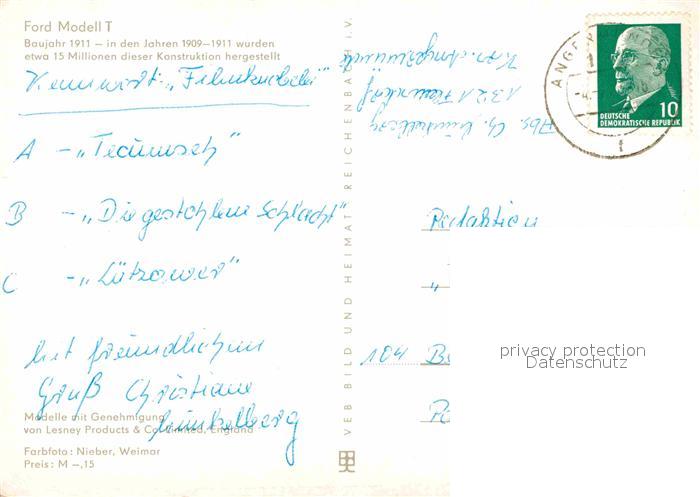 Ford Modell T
Baujahr 1911 – in den Jahren 1909–1911 wurden
etwa 15 Millionen dieser Konstruktion hergestellt
Kennwort: „Filmkuddel"
A – „Tecumseh"
B – „Die gestohlene Schlacht"
C – „Lützower"
Mit freundlichem
Gruß Christiane
Modelle mit Genehmigung
von Lesney Products & Co. Limited, England
Farbfoto: Nieber, Weimar
Preis: M –,15
VEB BILD UND HEIMAT REICHENBACH i. V.
Abs. Ch.
1321
Krs. Angermünde
ANGER
DEUTSCHE
DEMOKRATISCHE REPUBLIK
10
Redaktion
"
104 B
privacy protection
Datenschutz